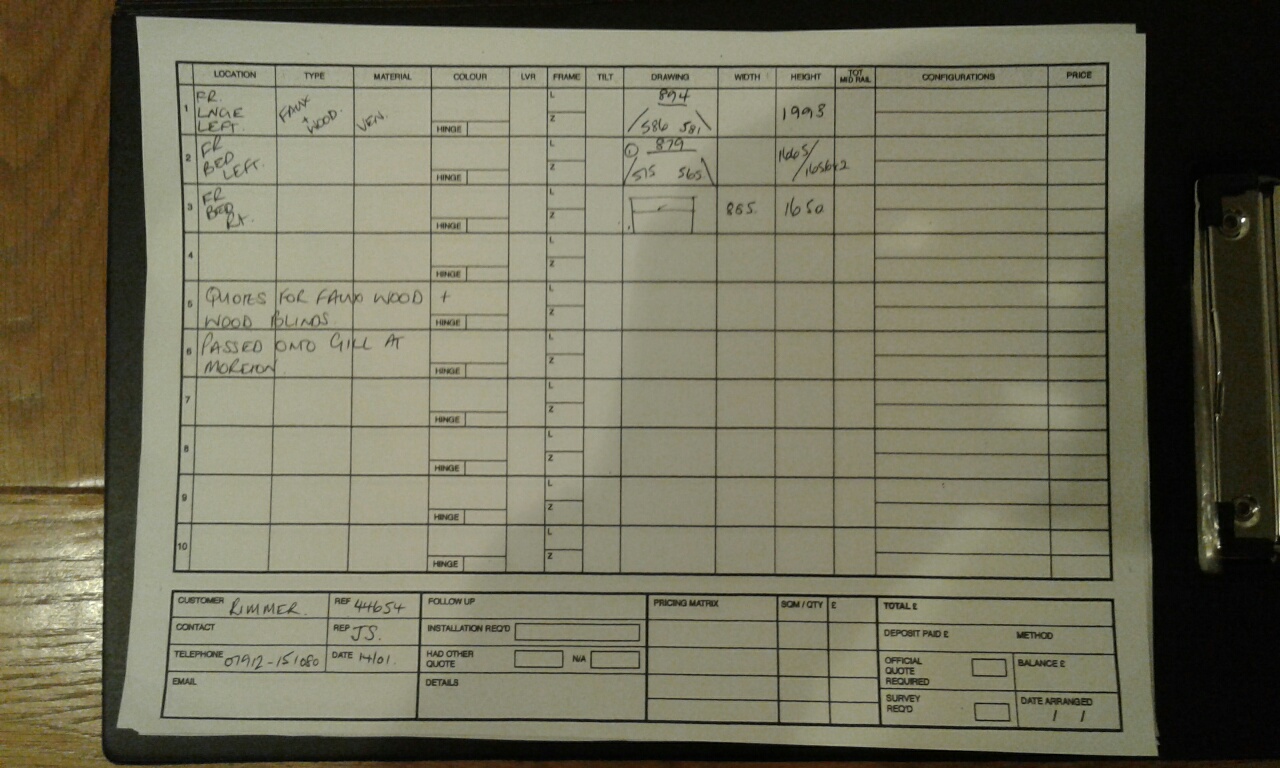 LOCATION TYPE MATERIAL COLOUR LVR FRAME TILT DRAWING WIDTH HEIGHT TOT MID RAIL CONFIGURATIONS PRICE
1 FR. LNGE LEFT. FAUX + WOOD. VEN. HINGE L Z 894 586 581 1993
2 FR BED LEFT. HINGE L Z 1 879 515 565 1665/
3 FR BED RT. HINGE L Z 865. 1650
4 HINGE L Z
5 QUOTES FOR FAUX WOOD +
WOOD BLINDS. HINGE L Z
6 PASSED ONTO GILL AT
MORETON HINGE L Z
7 HINGE L Z
8 HINGE L Z
9 HINGE L Z
10 HINGE L Z
CUSTOMER RIMMER. REF 44654 FOLLOW UP PRICING MATRIX SQM / QTY £ TOTAL £
CONTACT REP JS. INSTALLATION REQ'D DEPOSIT PAID £ METHOD
TELEPHONE 07912-151080 DATE 14/01. HAD OTHER QUOTE N/A OFFICIAL QUOTE REQUIRED BALANCE £
EMAIL DETAILS SURVEY REQ'D DATE ARRANGED / /